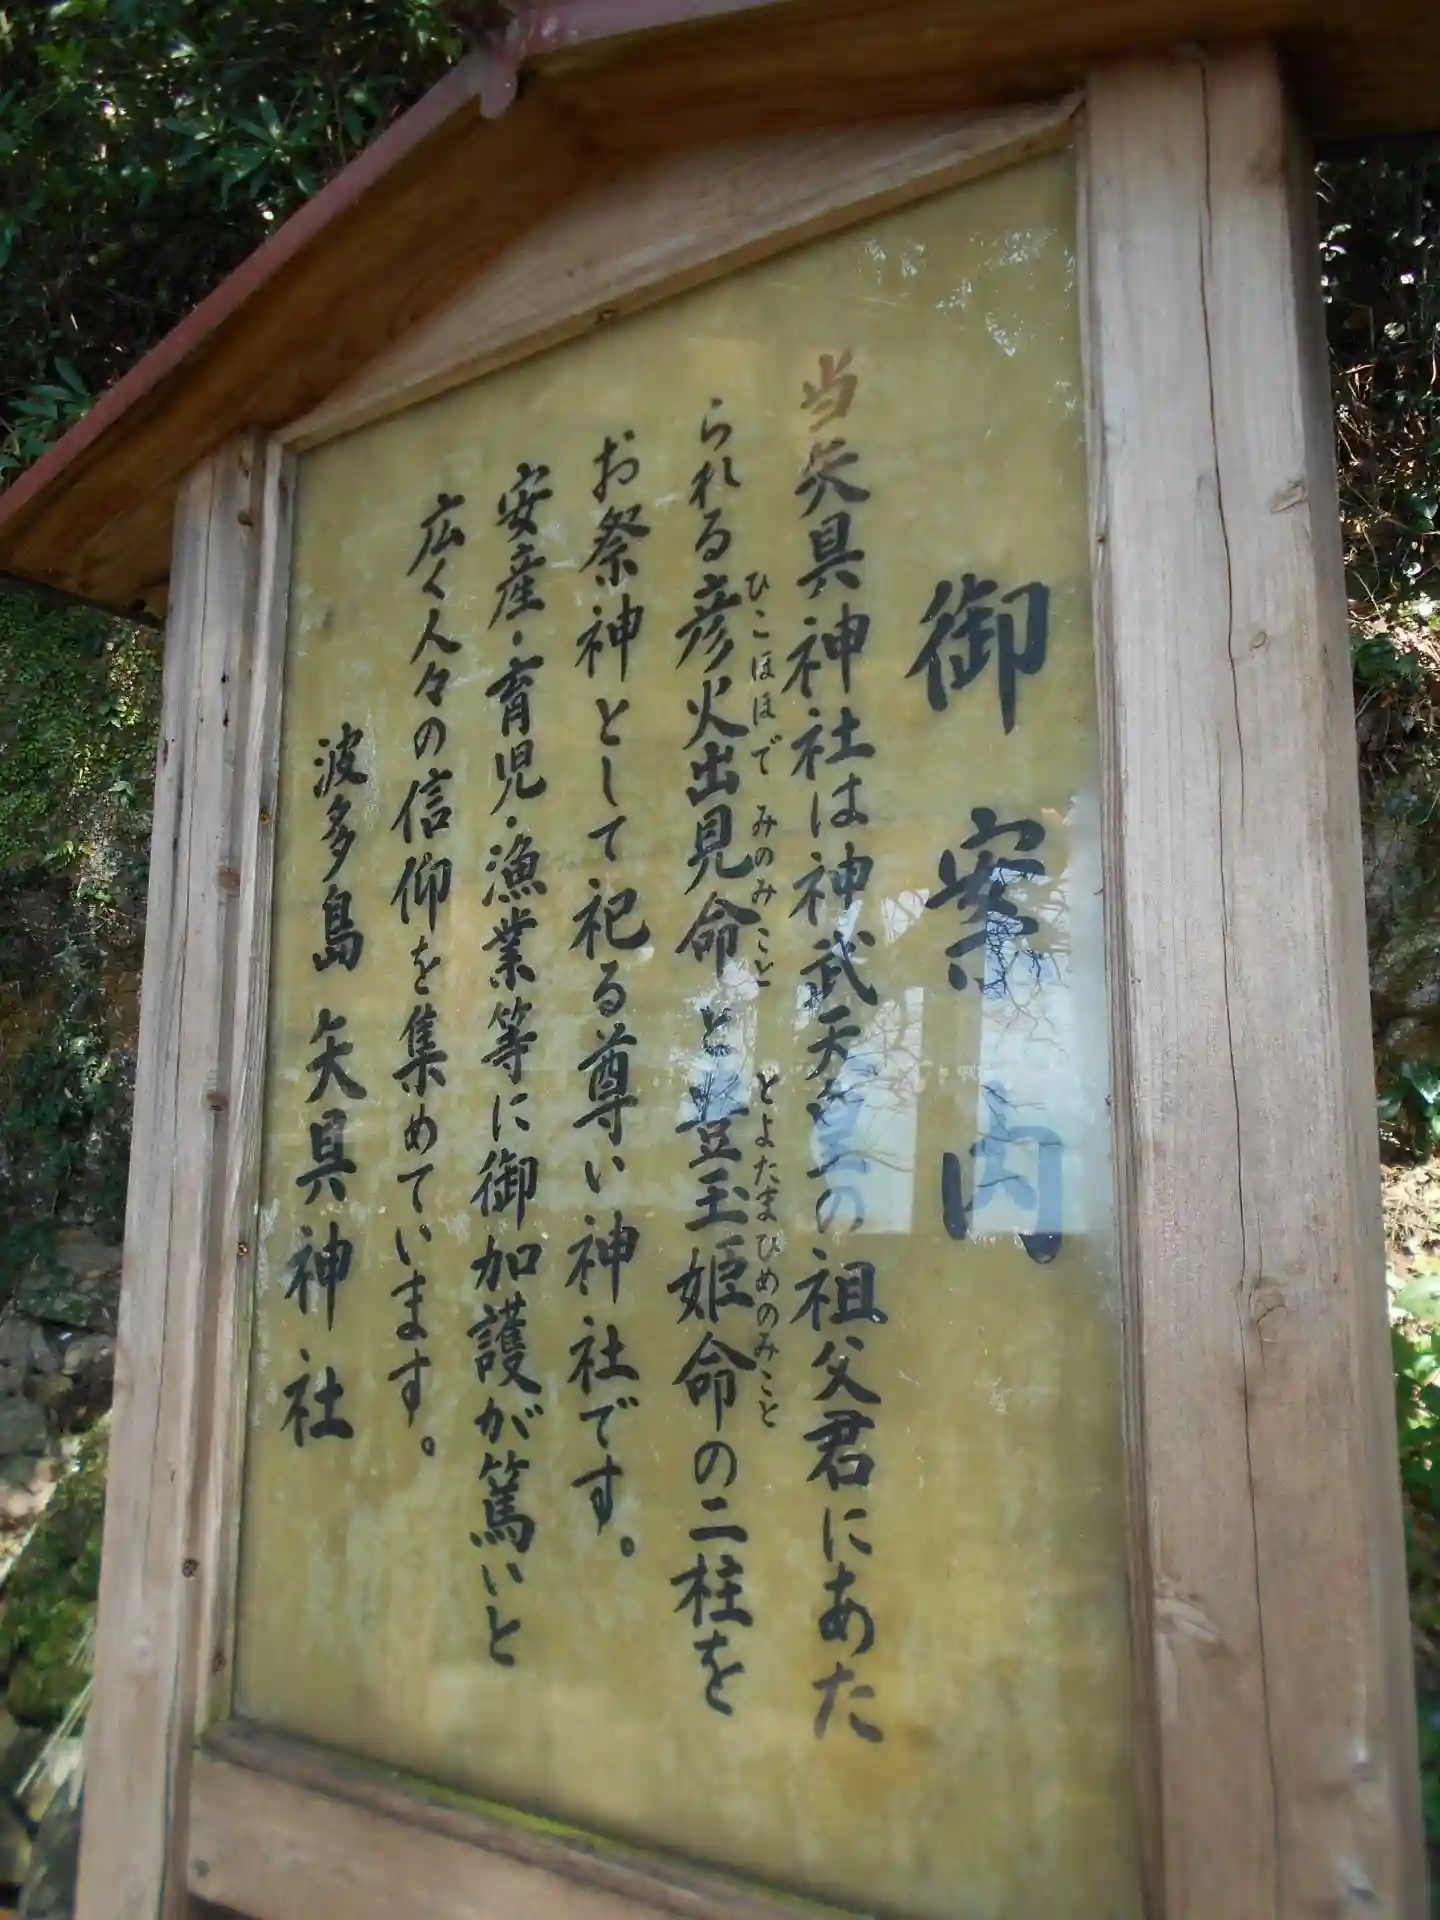 御案内
当矢具神社は神武天皇の祖父君にあた
られる彦火出見命と豊玉姫命の二柱を
ひこほほでみのみこと
とよたまひめのみこと
お祭神として祀る尊い神社です。
安産・育児・漁業等に御加護が篤いと
広く人々の信仰を集めています。
波多島 矢具神社